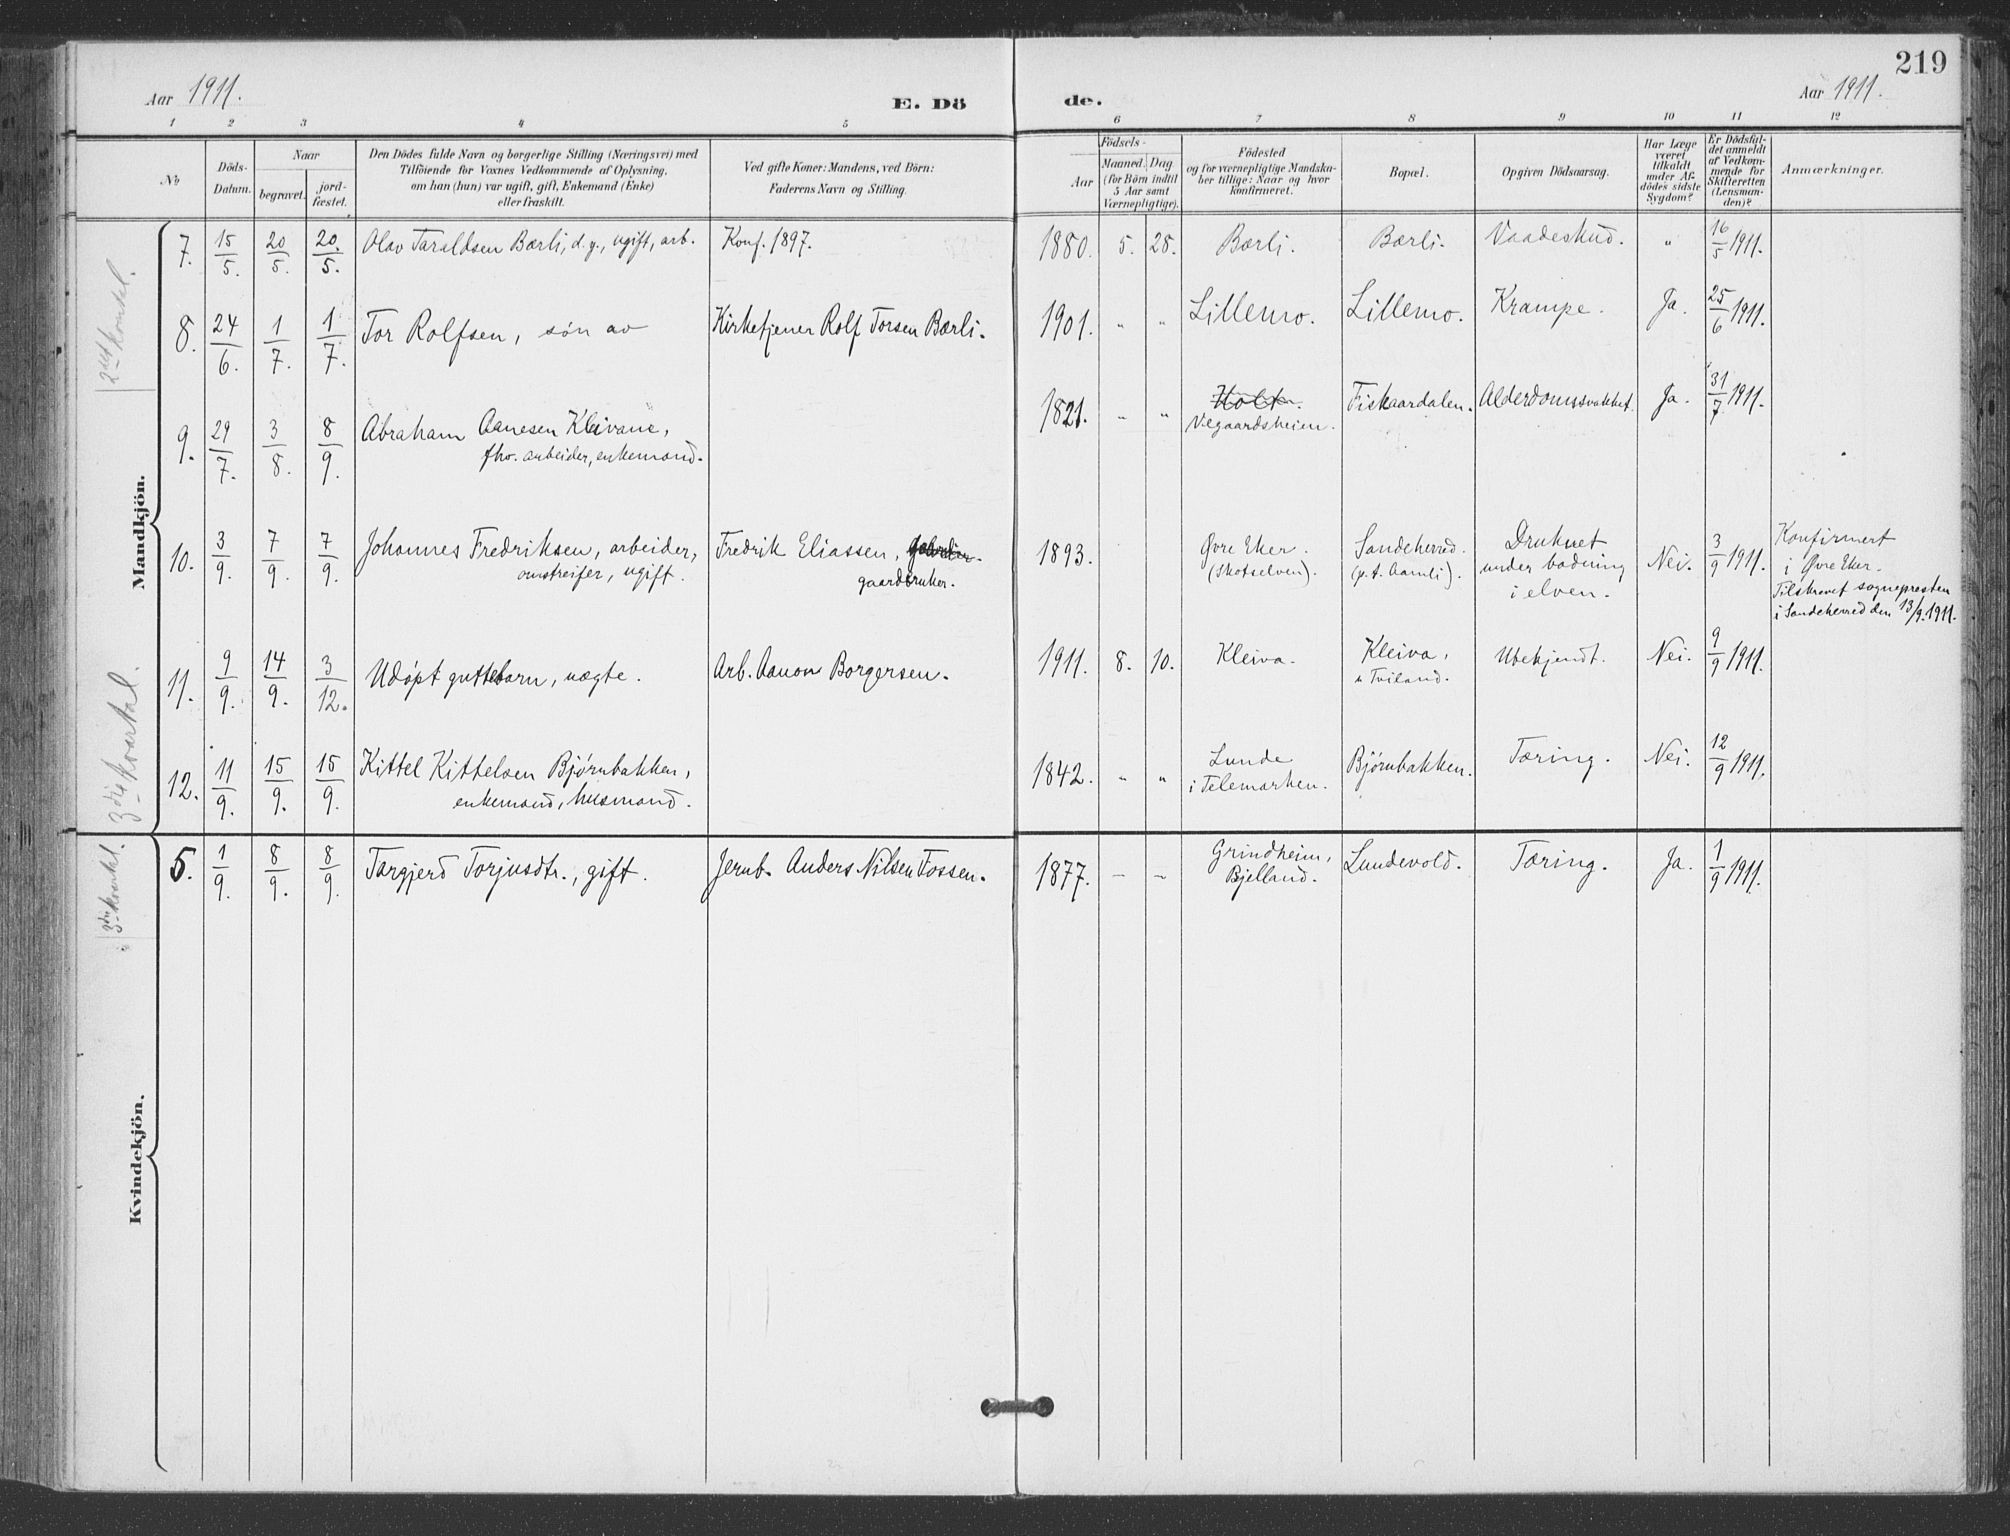 219
Aar 1911.
E. Dö
de.
Aar 1911.
1 2 3 4 5 6 7 8 9 10 11 12
No
Döds-
Datum.
Naar
begravet.
jord-
fæstet.
Den Dödes fulde Navn og borgerlige Stilling (Næringsvei) med
Tilföiende for Voxnes Vedkommende af Oplysning,
om han (hun) var ugift, gift, Enkemand (Enke)
eller fraskilt.
Ved gifte Koner: Mandens, ved Börn:
Faderens Navn og Stilling.
Födsels-
Aar
Maaned.
Dag
(for Börn indtil
5 Aar samt
Værnepligtige).
Födested
og for værnepligtige Mandska-
ber tillige: Naar og hvor
konfirmeret.
Bopæl.
Opgiven Dödsaarsag.
Har Læge
været
tilkaldt
under Af-
dödes sidste
Sygdom?
Er Dödsfal-
det anmeldt
af Vedkom-
mende for
Skifteretten
(Lensman-
den)?
Anmærkninger.
Mandkjön.
7. 15/5. 20/5. 20/5. Olav Taraldsen Bærli, d. y., ugift, arb. Konf. 1897. 1880. 5. 28. Bærli. Bærli. Vaadeskud. " 16/5 1911.
8. 24/6. 1/7. 1/7. Tor Rolfsen, søn av Kirketjener Rolf Torsen Bærli. 1901. " " Lillemo. Lillemo. Krampe. Ja. 25/6 1911.
9. 29/7. 3/8. 8/9. Abraham Aanesen Kleivane, 1821. " " Holt. Fiskaardalen. Alderdomssvakhet. Ja. 31/7 1911.
fhv. arbeider, enkemand. Vegaardsheien.
10. 3/9. 7/9. 7/9. Johannes Fredriksen, arbeider, Fredrik Eliassen, 1893. Øvre Eker. Sandeherred. Druknet Nei. 3/9 1911. Konfirmert
omstreifer, ugift. gaardbruker. (Skotselven). (p. t. Aamli). under badning i Øvre Eker.
i elven. Tilskrevet sognepresten
i Sandeherred den 13/9. 1911.
11. 9/9. 14/9. 3/12. Udøpt guttebarn, uægte. Arb. Aanon Borgersen. 1911. 8. 10. Kleiva. Kleiva, Ubekjendt. Nei. 9/9 1911.
u. Tviland.
12. 11/9. 15/9. 15/9. Kittel Kittelsen Bjørnbakken, 1842. " " Lunde Bjørnbakken. Tæring. Nei. 12/9 1911.
enkemand, husmand. i Telemarken.
3die kvartal.
Kvindekjön.
5. 1/9. 8/9. 8/9. Targjerd Torjusdtr., gift. Jernb. Anders Nilsen Fossen. 1877. – – Grindheim, Lundevold. Tæring. Ja. 1/9 1911.
Bjelland.
3die kvartal.